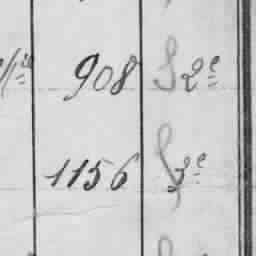 908 2e
1156 3e